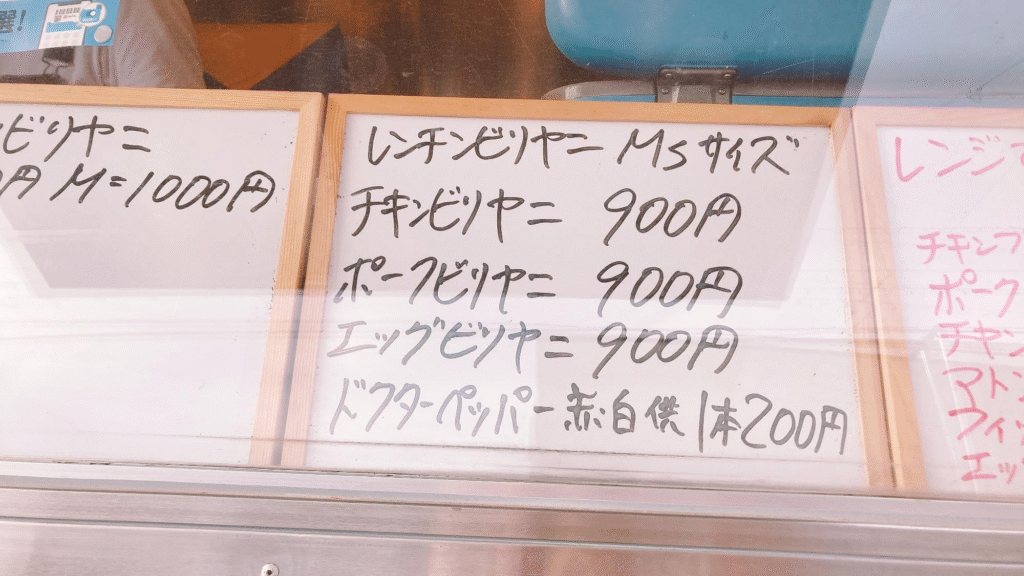 選!
ビリヤニ
0円 M=1000円
レンチンビリヤニ Msサイズ
チキンビリヤニ 900円
ポークビリヤニ 900円
エッグビリヤニ 900円
ドクターペッパー赤白供 1本200円
レンジ
チキン
ポーク
チャン
マトン
フィッ
エッ